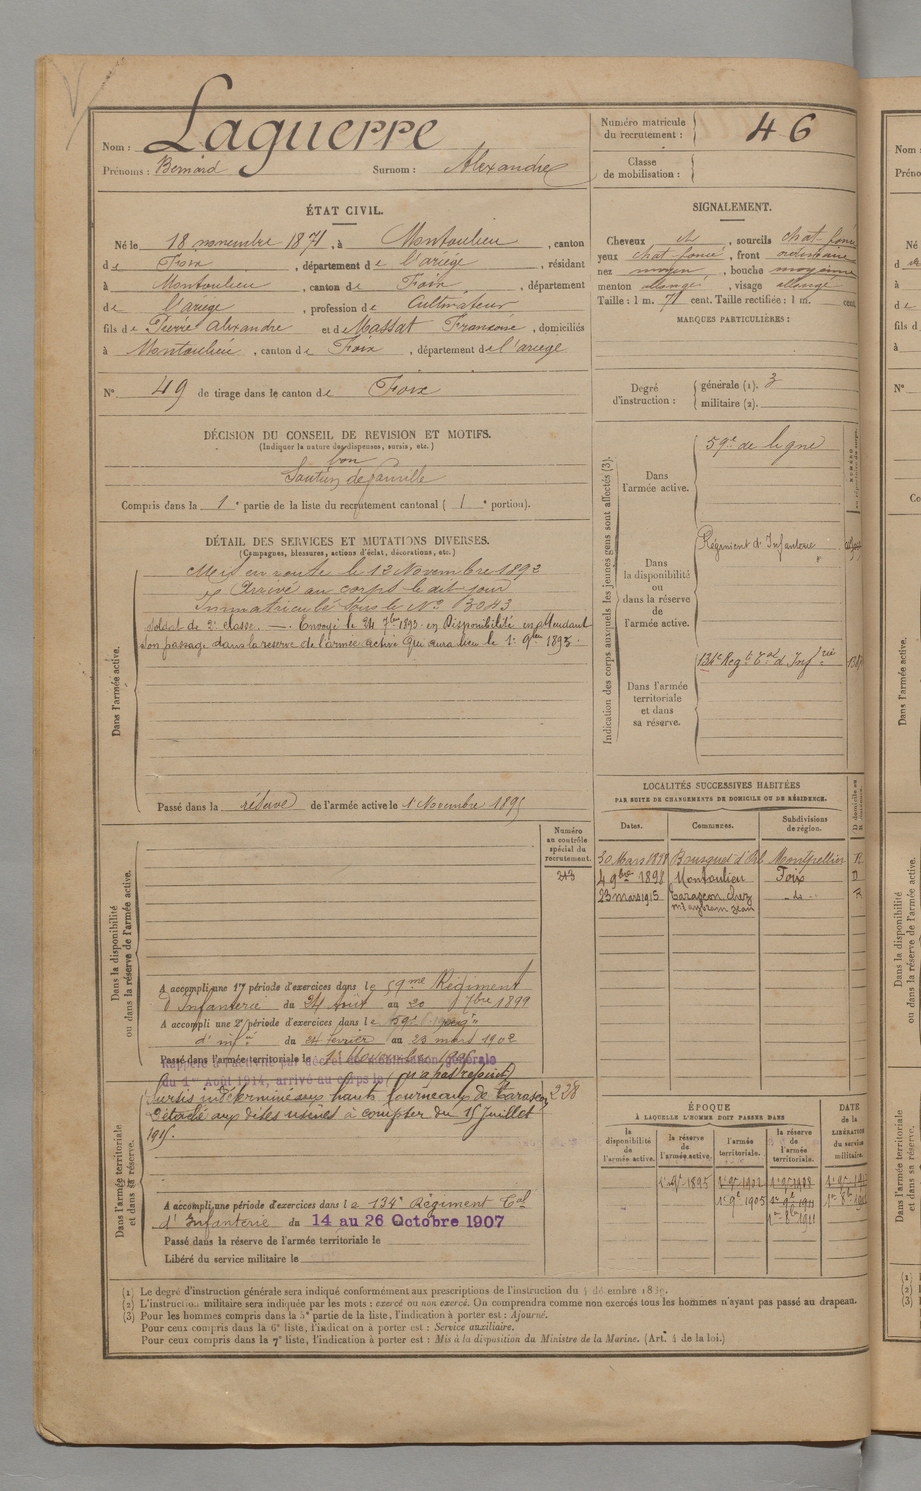 Nom : Laguerre
Prénoms : Bernard Surnom : Alexandre
Numéro matricule du recrutement : 46
Classe de mobilisation :
ÉTAT CIVIL.
Né le 18 novembre 1871, à Montoulieu, canton
de Foix, département de l'ariége, résidant
à Montoulieu, canton de Foix, département
de l'ariége, profession de Cultivateur
fils de Pierre Alexandre et de Massat Françoise, domiciliés
à Montoulieu, canton de Foix, département de l'ariege
N° 49 de tirage dans le canton de Foix
SIGNALEMENT.
Cheveux et, sourcils chat. foncé
yeux chat foncé, front ordinaire
nez moyen, bouche moyenne
menton allongé, visage allongé
Taille : 1 m. 71 cent. Taille rectifiée : 1 m. cent.
MARQUES PARTICULIÈRES :
Degré d'instruction :
générale (1). 3
militaire (2).
DÉCISION DU CONSEIL DE REVISION ET MOTIFS.
(Indiquer la nature des dispenses, sursis, etc.)
bon
Soutien de famille
Compris dans la 1e partie de la liste du recrutement cantonal ( 1e portion).
DÉTAIL DES SERVICES ET MUTATIONS DIVERSES.
(Campagnes, blessures, actions d'éclat, décorations, etc.)
Dans l'armée active.
Mis en route le 12 Novembre 1892
Arrivé au corps le dit jour
Immatriculé sous le N° 3043
Soldat de 2e classe. — Envoyé le 24 7bre 1893 en Disponibilité en attendant
son passage dans la reserve de l'armée active qui aura lieu le 1er 9bre 1895.
Passé dans la réserve de l'armée active le 1 Novembre 1895
Indication des corps auxquels les jeunes gens sont affectés (3).
Dans l'armée active.
59e de ligne
Dans la disponibilité ou dans la réserve de l'armée active.
Régiment d'Infanterie
Dans l'armée territoriale et dans sa réserve.
134e Regt Tal d'Infrie
LOCALITÉS SUCCESSIVES HABITÉES
PAR SUITE DE CHANGEMENTS DE DOMICILE OU DE RÉSIDENCE.
Dates. Communes. Subdivisions de région.
30 Mars 1898 Montpellier R
4 9bre 1898 Montoulieu Foix D
23 mars 1915 Tarascon chez - do - R
Dans la disponibilité ou dans la réserve de l'armée active.
Numéro au contrôle spécial du recrutement.
A accompli une 1re période d'exercices dans le 59me Régiment
d'Infanterie du 24 Août au 20 7bre 1899
A accompli une 2e période d'exercices dans le 59e
d'infie du 24 fevrier au 23 mars 1902
Passé dans l'armée territoriale le 1er Novembre 1905
Rappelé à l'activité par décret de mobilisation générale
du 1er Août 1914, arrivé au corps le (n'a pas rejoint)
Dans l'armée territoriale et dans sa réserve.
Sursis indéterminé aux hauts fourneaux de Tarascon 228
Détaché aux dites usines à compter du 15 Juillet
1915.
A accompli une période d'exercices dans le 134e Régiment Tal
d'Infanterie du 14 au 26 Octobre 1907
Passé dans la réserve de l'armée territoriale le
Libéré du service militaire le
ÉPOQUE
À LAQUELLE L'HOMME DOIT PASSER DANS
la disponibilité de l'armée active. la réserve de l'armée active. l'armée territoriale. la réserve de l'armée territoriale.
DATE de la LIBÉRATION du service militaire.
1er 9e 1895
1er 9e 1905
(1) Le degré d'instruction générale sera indiqué conformément aux prescriptions de l'instruction du 4 décembre 1889.
(2) L'instruction militaire sera indiquée par les mots : exercé ou non exercé. On comprendra comme non exercés tous les hommes n'ayant pas passé au drapeau.
(3) Pour les hommes compris dans la 5e partie de la liste, l'indication à porter est : Ajourné.
Pour ceux compris dans la 6e liste, l'indication à porter est : Service auxiliaire.
Pour ceux compris dans la 7e liste, l'indication à porter est : Mis à la disposition du Ministre de la Marine. (Art. 4 de la loi.)